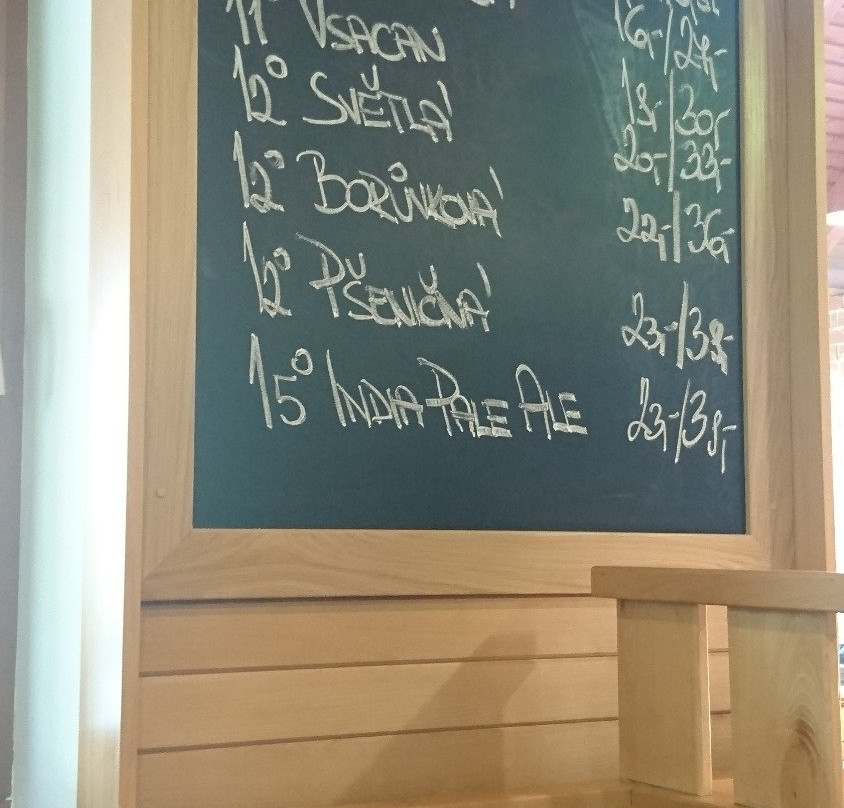 11° VSACAN 16,-/27,-
12° SVĚTLÁ 18,-/30,-
20,-/33,-
12° BORŮVKOVÁ 22,-/36,-
12° PŠENIČNÁ 23,-/38,-
15° INDIA PALE ALE 23,-/38,-